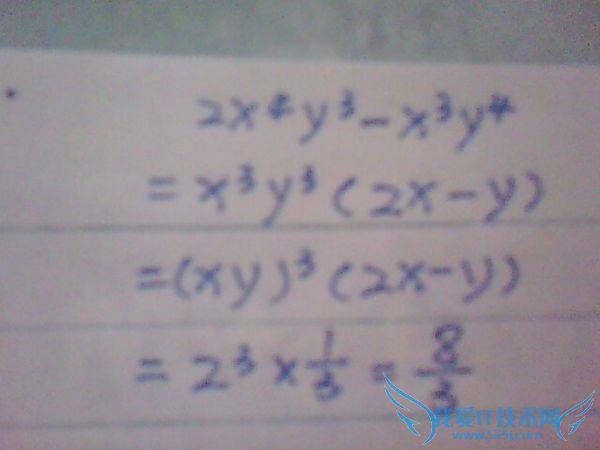 2x⁴y³-x³y⁴
=x³y³(2x-y)
=(xy)³(2x-y)
=2³×1/3=8/3